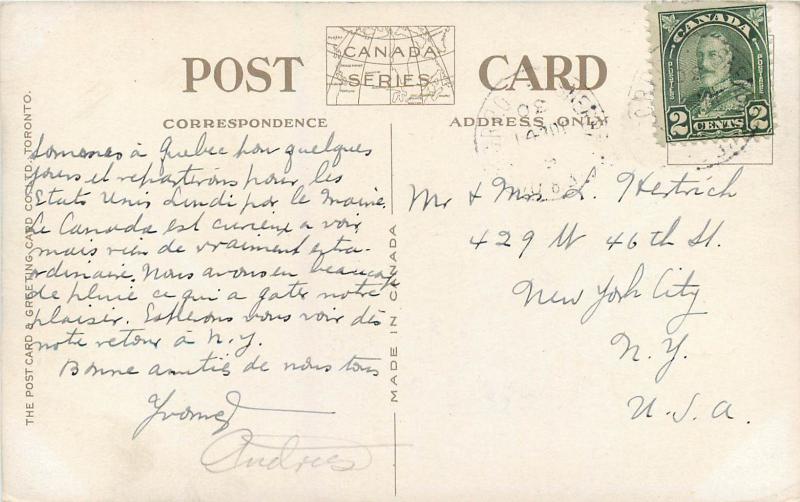 POST CARD
CANADA
SERIES
CANADA
POSTES
POSTAGE
2 CENTS 2
CORRESPONDENCE
ADDRESS ONLY
Sommes à Quebec pour quelques
jours et repartirons pour les
Etats Unis Lundi par le Maine.
Le Canada est curieux a voir
mais rien de vraiment extra-
ordinaire. Nous avons eu beaucoup
de pluie ce qui a gater notre
plaisir. Esperons vous voir dès
notre retour à N.Y.
Bonne amitié de nous tous
Yvonne
Andrée
Mr & Mrs L. Hertrich
429 W 46th St.
New York City
N.Y.
U.S.A.
MADE IN CANADA
THE POST CARD & GREETING CARD CO. LTD. TORONTO.